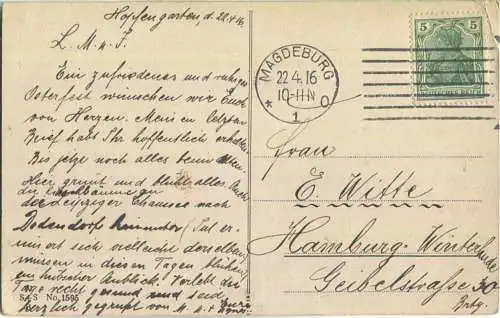 Hopfengarten, d. 22.4.16
L. M. u. P.
Ein zufriedenes und ruhiges
Osterfest wünschen wir Euch
von Herzen. Meinen letzten
Brief habt Ihr hoffentlich erhalten
Bis jetzt noch alles beim alten.
Hier grünt und blüht alles. Auch
die
der Leipziger Chaussee nach
Dodendorf
sich vielleicht derselben
müssen in diesen Tagen blühen
ein hübscher Anblick. Verlebt die
Tage recht gesund und seid
herzlich gegrüßt von
S & S No. 1595
MAGDEBURG
22.4.16
10-11N
* 1 o
5 5
DEUTSCHES REICH
Frau
E. Witte
Hamburg-Winterhude
Geibelstraße 30